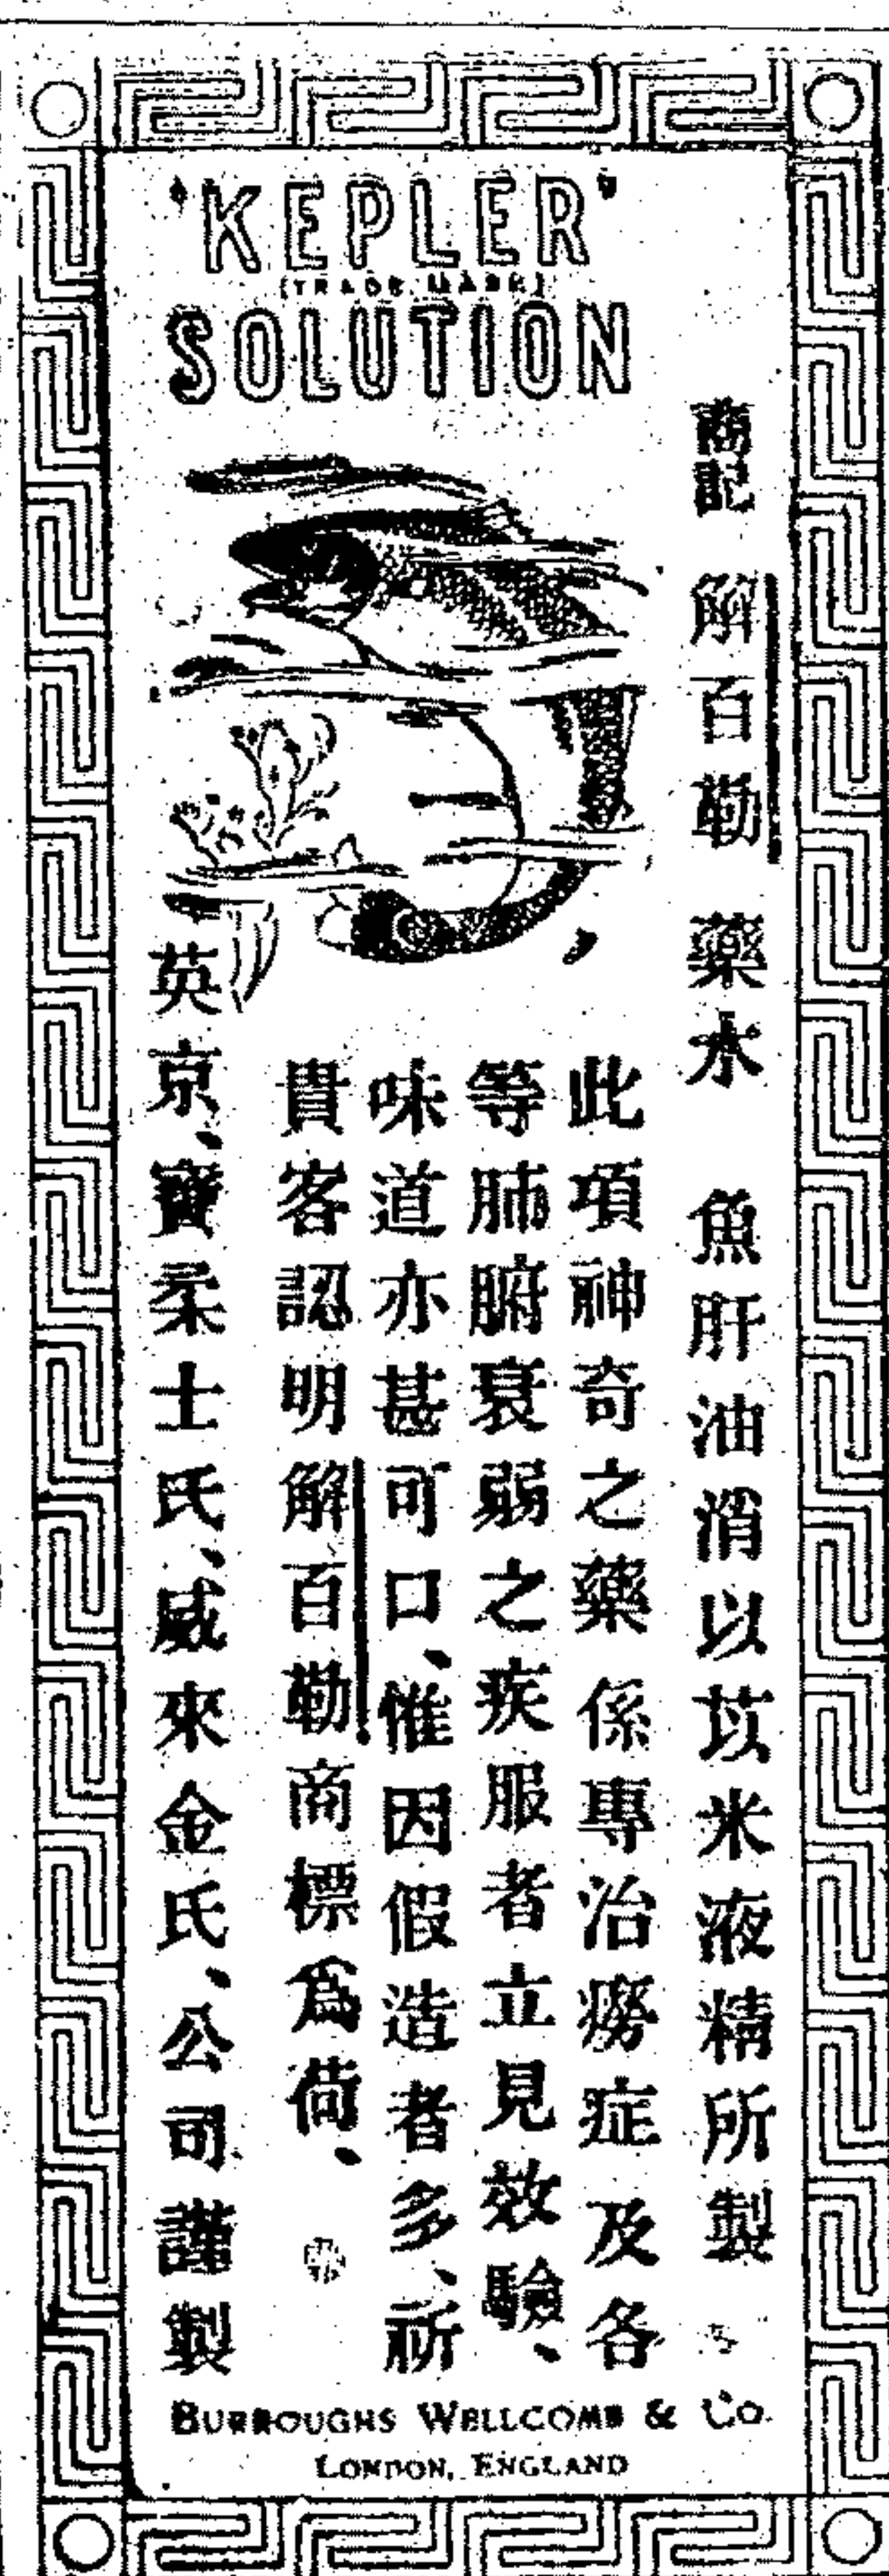 'KEPLER'
(TRADE MARK)
SOLUTION
商記 解百勒 藥水 魚肝油消以苡米液精所製
此項神奇之藥係專治癆症及各
等肺腑衰弱之疾服者立見效驗、
味道亦甚可口、惟因假造者多、祈
貴客認明解百勒商標爲荷、
英京、寶柔士氏、威來金氏、公司謹製
BURROUGHS WELLCOME & Co.
LONDON, ENGLAND